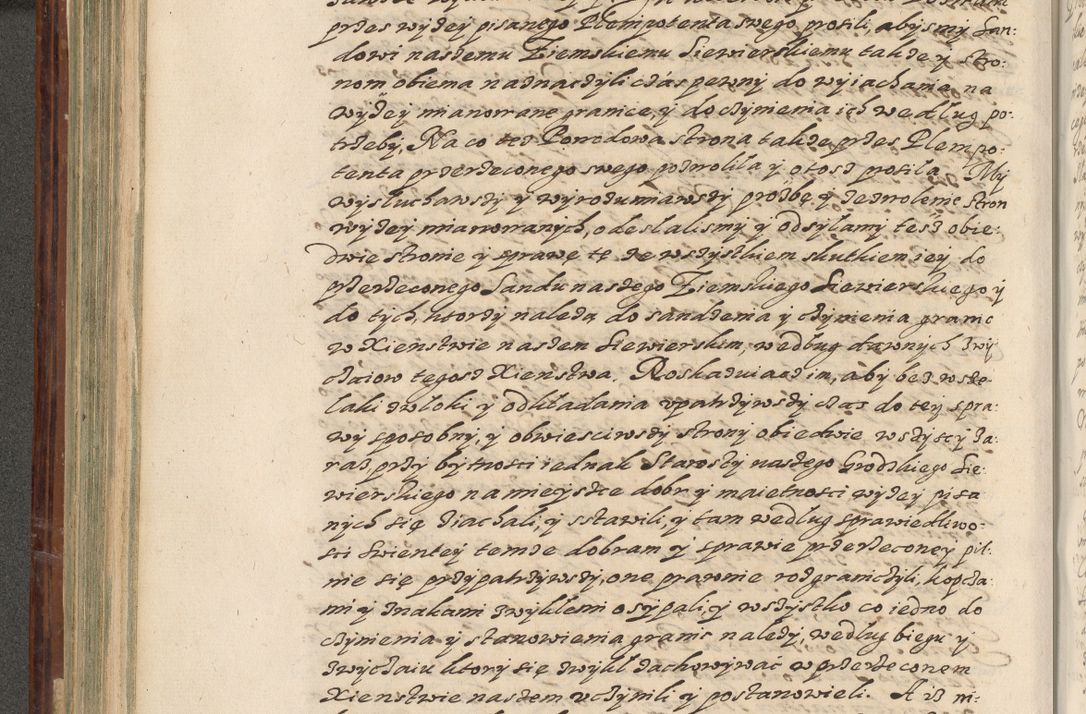 przez wyzey pisanego Plenipotenta swego, prosili, abysmy San:
dowi naszemu Ziemskiemu Siewierskiemu takze y stro:
nom obiema naznaczyli czas pewny do wyiachania na
wyzey mianowane granice, y do czynienia ich według po:
trzeby, Na co tez Powodowa strona takze przez Plenipo:
tenta przerzeconego swego pozwoliła y otosz prosiła. My
wysłuchawszy y wyrozumiawszy prozbę y zezwolenie stron
wyzey mianowanych, odesłalismy y odsyłamy tesz obie:
dwie stronie y sprawę tę ze wszystkiem skutkiem iey do
przerzeconego Sandu naszego Ziemskiego Siewierskiego y
do tych, ktorzy nalezą do sandzenia y czynienia granic
w Xienstwie naszem Siewierskim, według dawnych zwy
czaiow tegosz Xienstwa. Roskazuiącz im, aby bez wsze
laki zwłoki y odkładania upatrzywszy czas do tey spra:
wy sposobny, y obwiesciwszy strony obiedwie wszyscy za:
raz, przy bytnosci iednak Starosty naszego Grodzkiego Sie:
wierskiego na mieysce dobr y maietnosci wyzey pisa
nych się ziachali, y sstawili, y tam według sprawiedliwo:
sci Swientey temze dobram y sprawie przerzeconey pil:
nie się przypatrzywszy, one prawnie rozgraniczyli, kopca:
mi y znakami zwykłemi osypali, y wszystko co iedno do
czynienia y stanowienia granic nalezy, według biegu y
zwyczaiu ktory się zwykł zachowywać w przerzeconem
Xienstwie naszem uczynili y postanowieli. A isz ni: